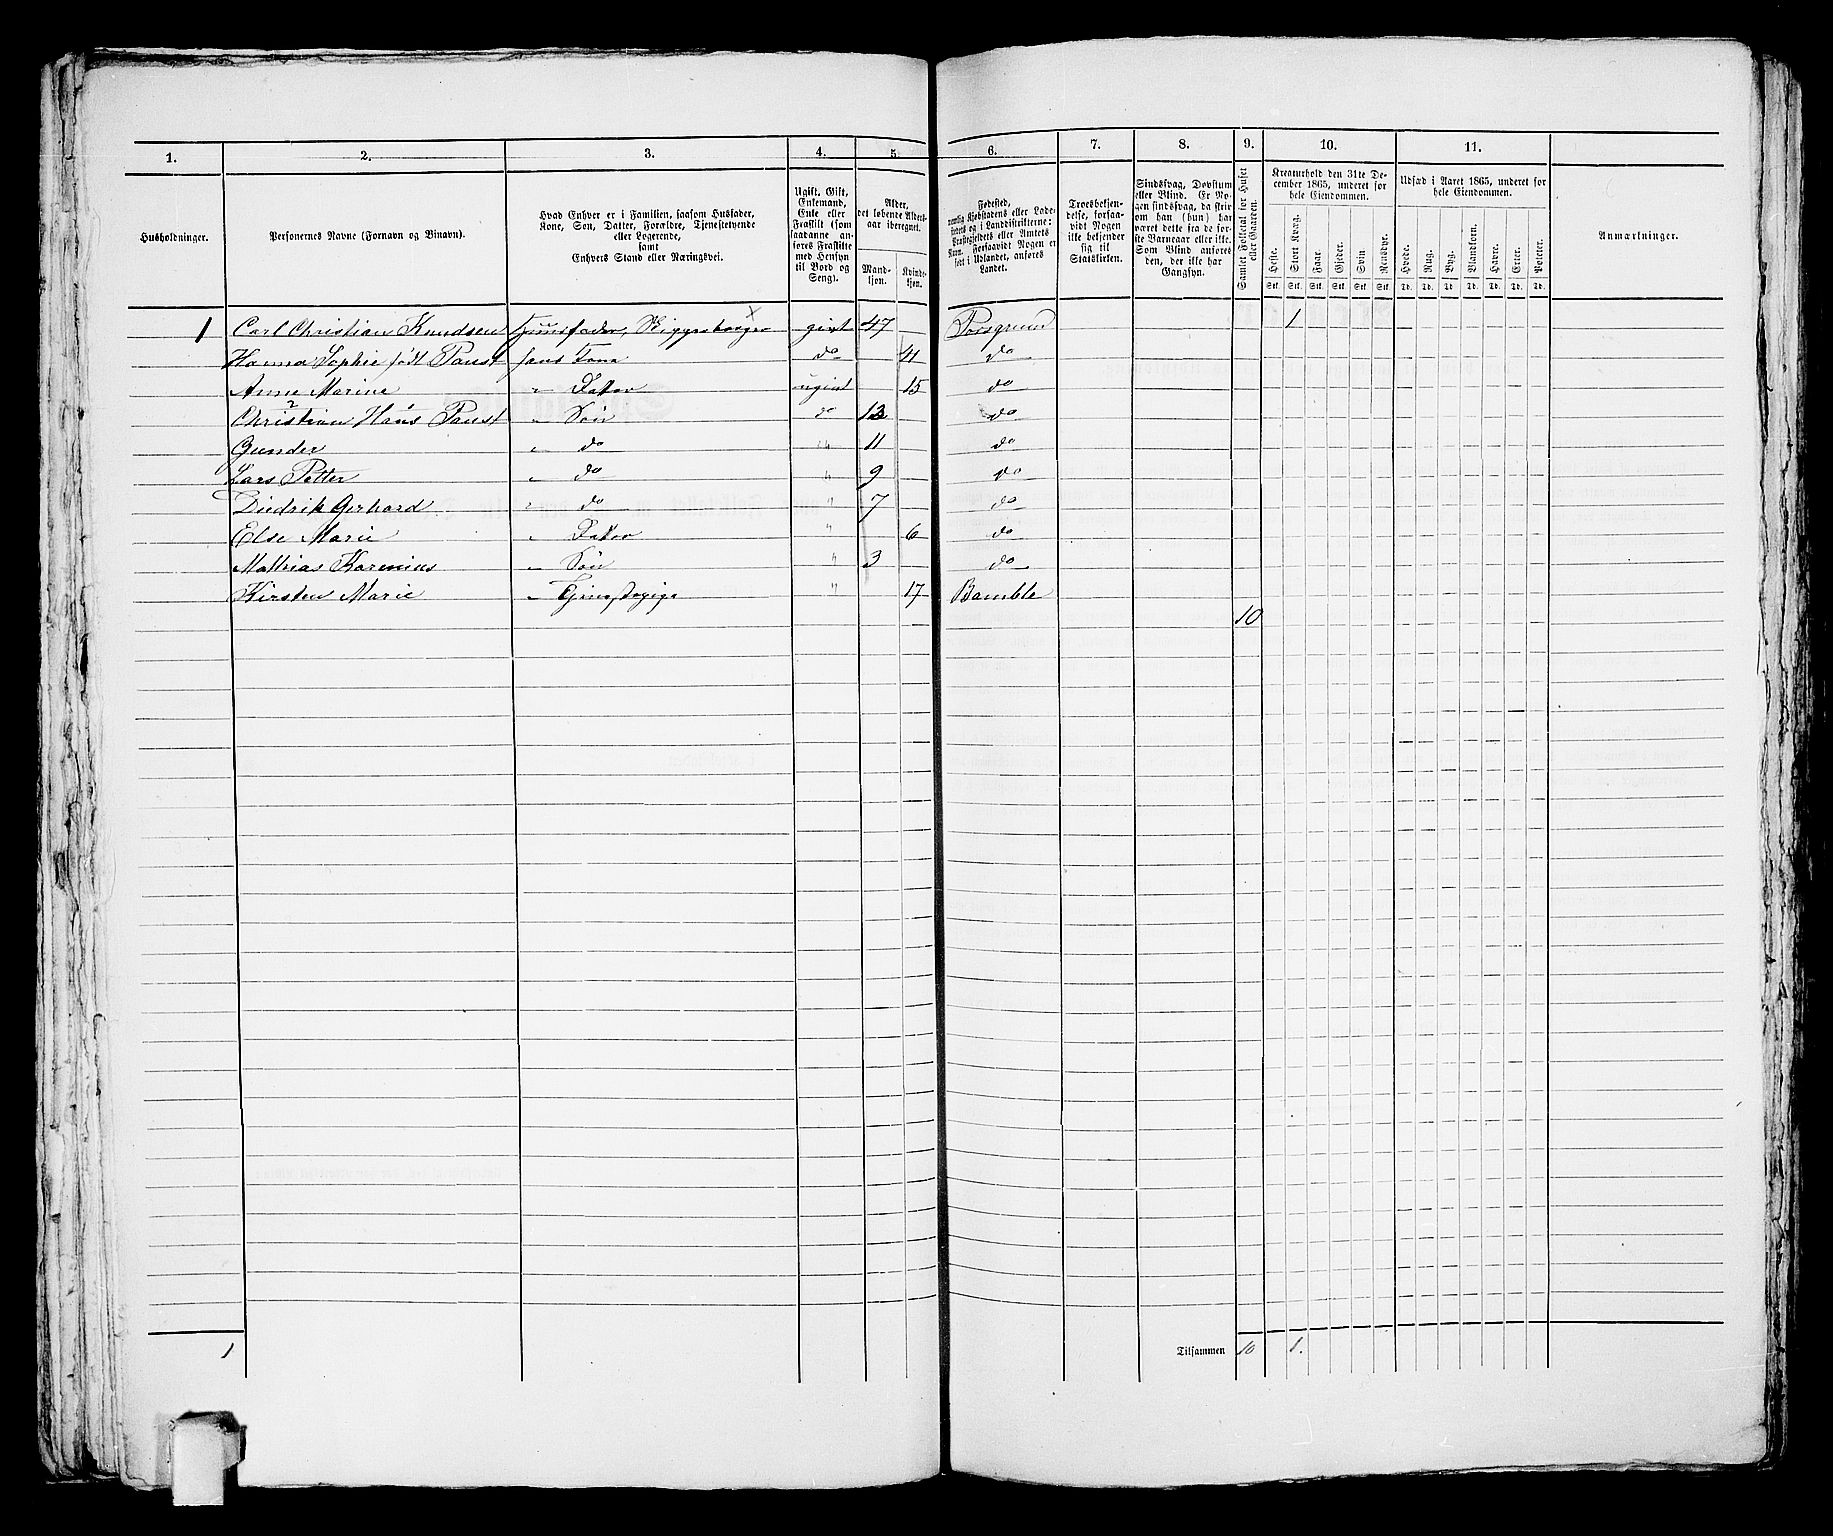 1. 2. 3. 4. 5. 6. 7. 8. 9. 10. 11.
Husholdninger.
Personernes Navne (Fornavn og Binavn).
Hvad Enhver er i Familien, saasom Husfader,
Kone, Søn, Datter, Forældre, Tjenestetyende
eller Logerende,
samt
Enhvers Stand eller Næringsvei.
Ugift, Gift,
Enkemand,
Enke eller
Fraskilt (som
saadanne an-
føres Fraskilte
med Hensyn
til Bord og
Seng).
Alder,
det løbende Alders-
aar iberegnet.
Mand-
kjøn.
Kvinde-
kjøn.
Fødested,
nemlig Kjøbstadens eller Lade-
stedets og i Landdistrikterne:
Præstegjeldets eller Amtets
Navn. Forsaavidt Nogen er
født i Udlandet, anføres
Landet.
Troesbekjen-
delse, forsaa-
vidt Nogen
ikke bekjender
sig til
Statskirken.
Sindssvag, Døvstum
eller Blind. Er No-
gen sindssvag, da skriv
om han (hun) har
været dette fra de for-
ste Barneaar eller ikke.
Som Blind anføres
den, der ikke har
Gangsyn.
Samlet Folketal for Huset
eller Gaarden.
Kreaturhold den 31te De-
cember 1865, underet for
hele Eiendommen.
Heste. Stort Kvæg. Faar. Gjeder. Svin. Rensdyr.
Stk. Stk. Stk. Stk. Stk. Stk.
Udsæd i Aaret 1865, underet for
hele Eiendommen.
Hvede. Rug. Byg. Blandkorn. Havre. Erter. Poteter.
Td. Td. Td. Td. Td. Td. Td.
Anmærkninger.
1 Carl Christian Knudsen Huusfader, Skiggesborger × givt 47 Porsgrund 1
Hanna Sophie født Paust hans Kone do 41 do
Anne Marine " Datter ugivt 15 do
Christian Hans Paust " Søn do 13 do
Gunder " do " 11 do
Lars Petter " do " 9 do
Diedrik Gerhard " do " 7 do
Else Marie " Datter " 6 do
Mathias Karenius " Søn " 3 do
Kirsten Marie " Tjenestepige " 17 Bamble
10
1 Tilsammen 10 1.